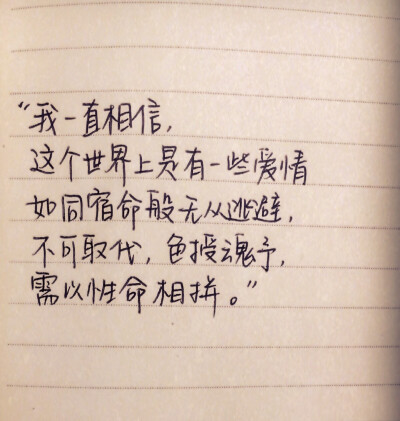 “我一直相信,
这个世界上是有一些爱情
如同宿命般无从逃避,
不可取代,色授魂予,
需以性命相拼。”